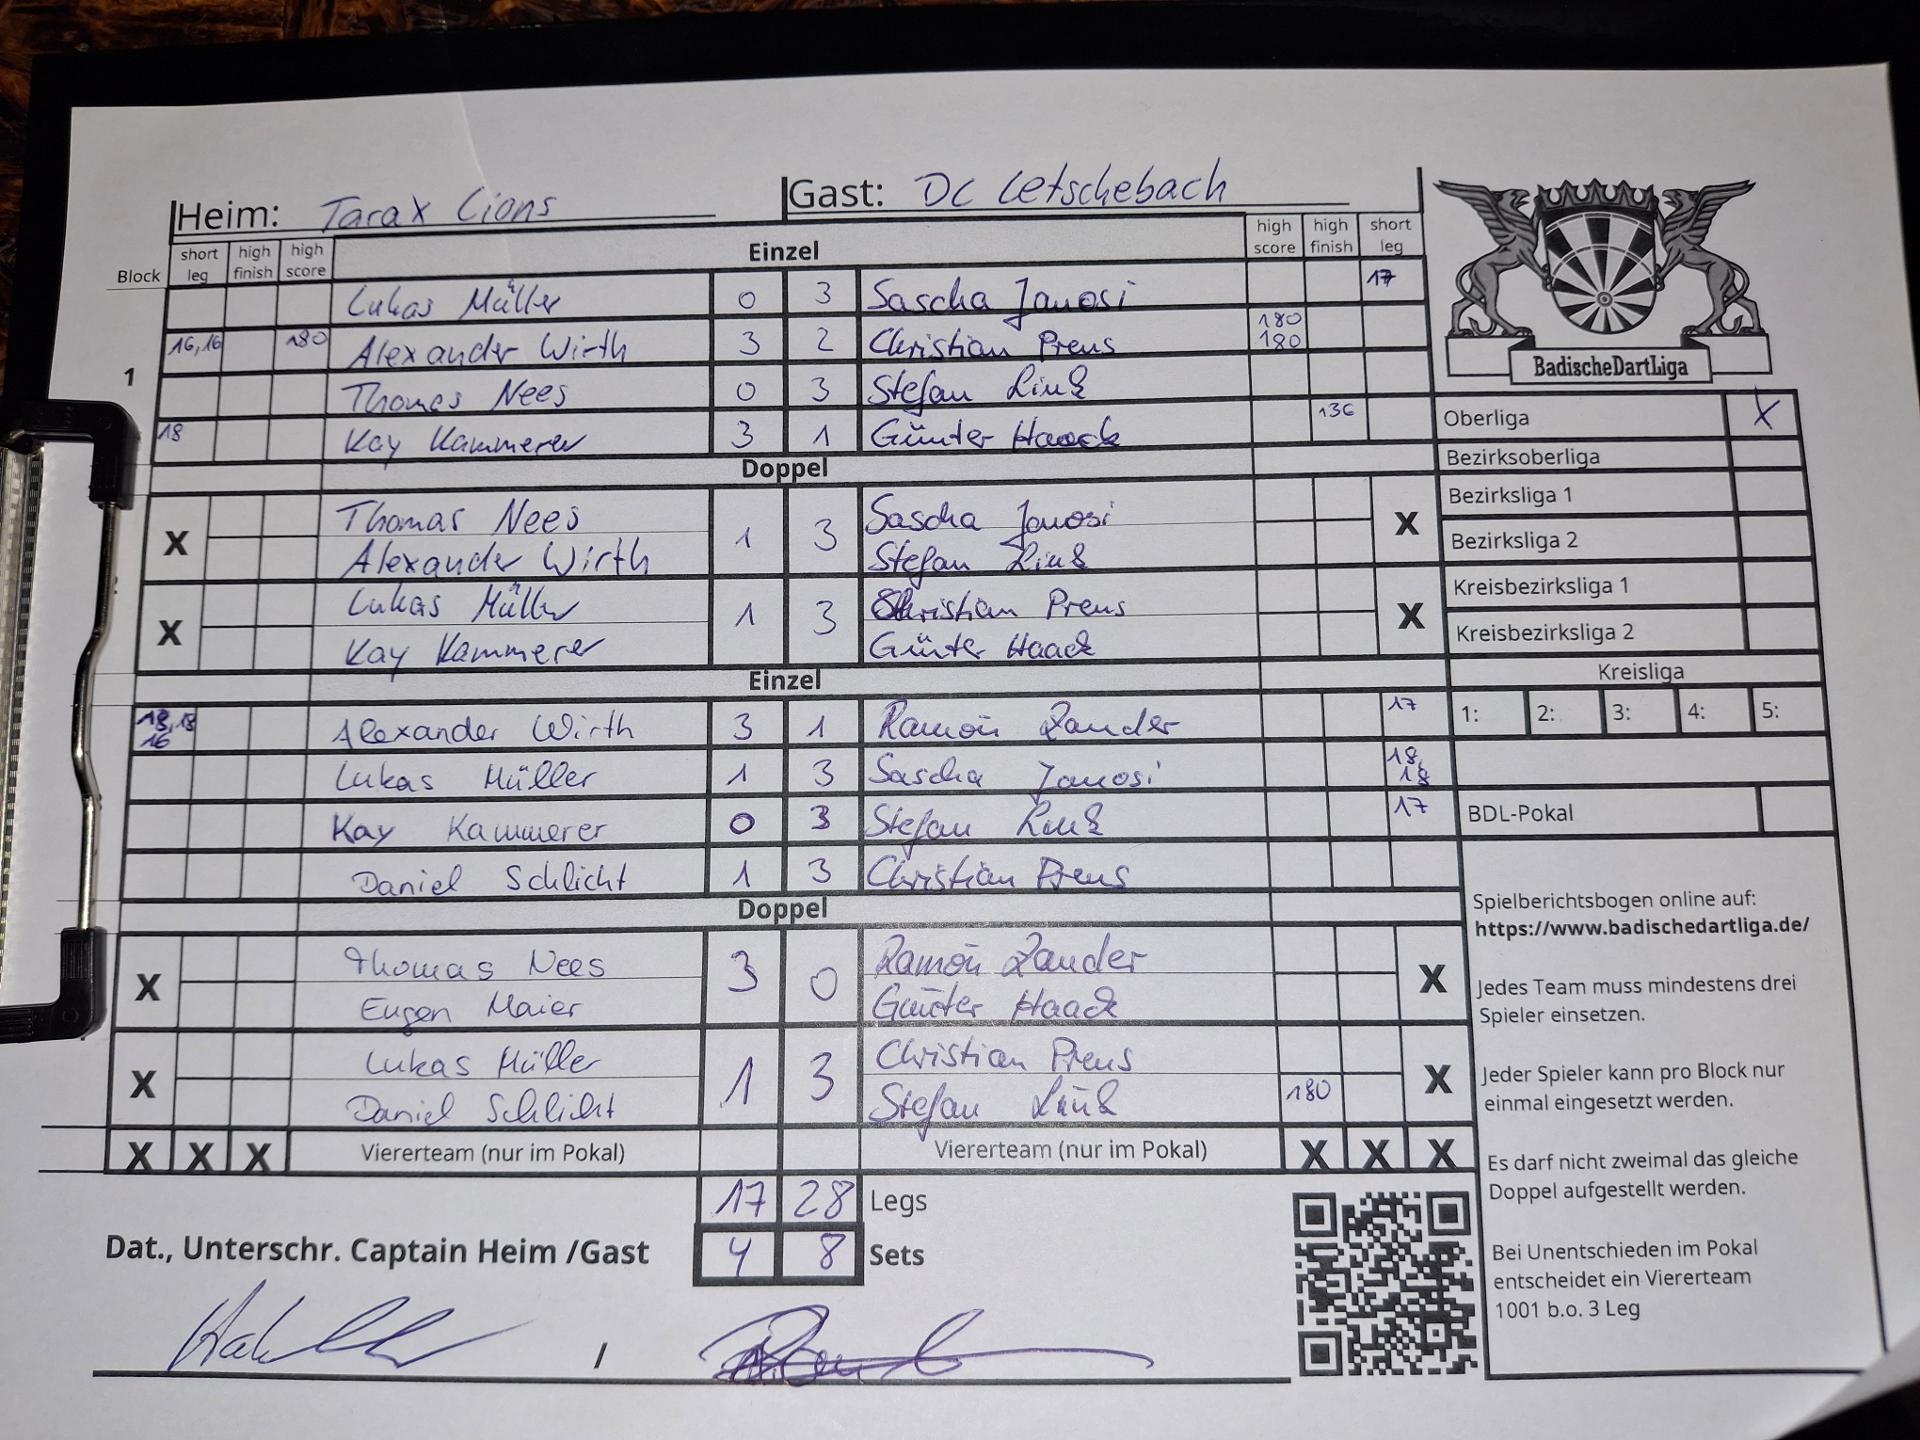 Heim: Tarax Lions Gast: DC Letschebach
Block short leg high finish high score Einzel high score high finish short leg
Lukas Müller 0 3 Sascha Janosi 17
16,16 180 Alexander Wirth 3 2 Christian Preus 180 180
1
Thomas Nees 0 3 Stefan Link
18 Kay Kammerer 3 1 Günter Haack 136
Doppel
X Thomas Nees 1 3 Sascha Janosi X
Alexander Wirth Stefan Link
X Lukas Müller 1 3 Christian Preus X
Kay Kammerer Günter Haack
Einzel
18,18 16 Alexander Wirth 3 1 Ramon Zander 17
Lukas Müller 1 3 Sascha Janosi 18, 18
Kay Kammerer 0 3 Stefan Link 17
Daniel Schlicht 1 3 Christian Preus
Doppel
X Thomas Nees 3 0 Ramon Zander X
Eugen Maier Günter Haack
X Lukas Müller 1 3 Christian Preus X
Daniel Schlicht Stefan Link 180
X X X Viererteam (nur im Pokal) Viererteam (nur im Pokal) X X X
17 28 Legs
Dat., Unterschr. Captain Heim /Gast 4 8 Sets
/
BadischeDartLiga
Oberliga X
Bezirksoberliga
Bezirksliga 1
Bezirksliga 2
Kreisbezirksliga 1
Kreisbezirksliga 2
Kreisliga
1: 2: 3: 4: 5:
BDL-Pokal
Spielberichtsbogen online auf:
https://www.badischedartliga.de/
Jedes Team muss mindestens drei
Spieler einsetzen.
Jeder Spieler kann pro Block nur
einmal eingesetzt werden.
Es darf nicht zweimal das gleiche
Doppel aufgestellt werden.
Bei Unentschieden im Pokal
entscheidet ein Viererteam
1001 b.o. 3 Leg